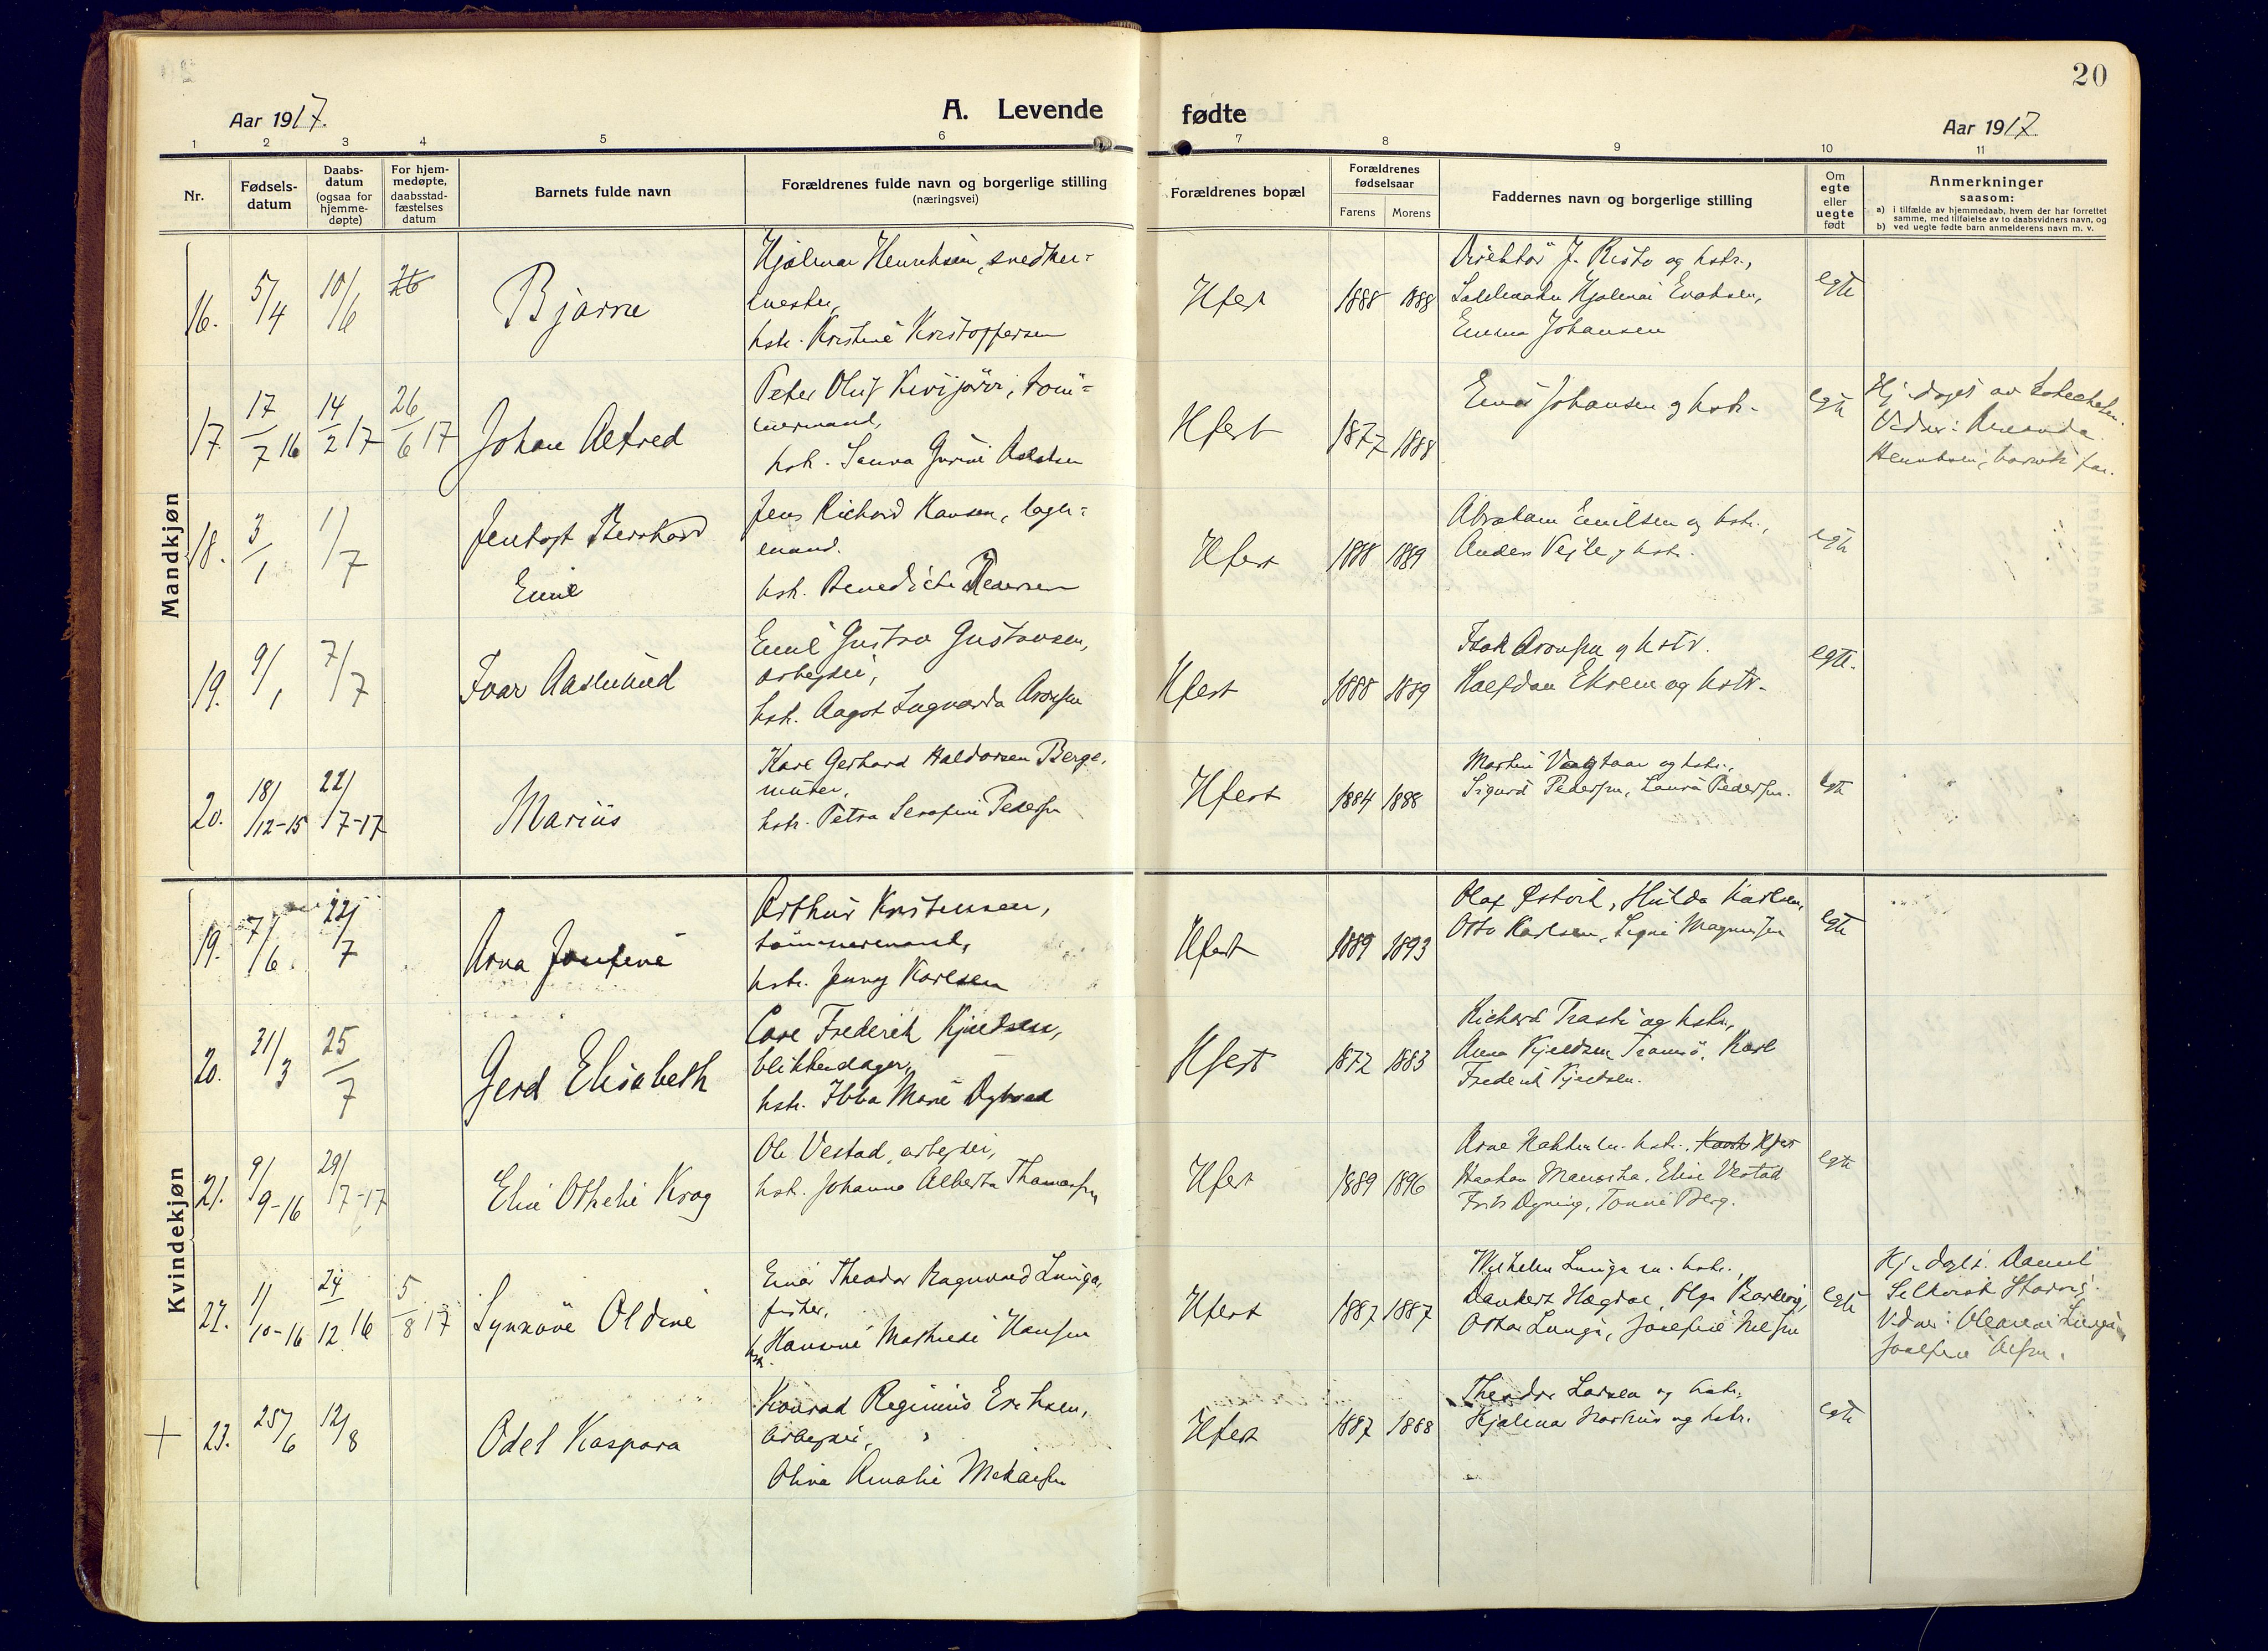 20
Aar 1917.
A. Levende
fødte
Aar 1917
1 2 3 4 5 6 7 8 9 10 11
Nr.
Fødsels-
datum
Daabs-
datum
(ogsaa for
hjemme-
døpte)
For hjem-
medøpte,
daabsstad-
fæstelses
datum
Barnets fulde navn
Forældrenes fulde navn og borgerlige stilling
(næringsvei)
Forældrenes bopæl
Forældrenes
fødselsaar
Farens Morens
Faddernes navn og borgerlige stilling
Om
egte
eller
uegte
født
Anmerkninger
saasom:
a) i tilfælde av hjemmedaab, hvem der har forrettet
samme, med tilføielse av to daabsvidners navn, og
b) ved uegte fødte barn anmelderens navn m. v.
Mandkjøn
16. 5/4 10/6 26
Bjarne
Hjalmar Henriksen, snedker-
mester,
hstr. Kristine Kristoffersen
Hfest 1888 1888
Direktør J. Risto og hstr.,
Hjalmar
Emma Johansen
egte
17. 17/7 16 14/2 17 26/6 17
Johan Alfred
Peter Oluf Kivijärvi, töm-
mermand,
hstr.
Hfest 1877 1888
Johansen og hstr.
egte
Hj. døpt av
Vidner: Amanda
Henriksen, barnets far.
18. 3/1 1/7
Bernhard
Emil
Jens Richard Hansen, lager-
mand.
hstr. Benedicte Pedersen
Hfest 1888 1889
Abraham Emilsen og hstr.,
Anders Vejle og hstr.
egte
19. 9/1 7/7
Ivar Aaslund
Emil Gustav Gustavsen,
arbejder,
hstr. Aagot Ingvarda Aronsen
Hfest 1888 1889
Isak Aronsen og hstr.
Halfdan Ekrem og hstr.
egte.
20. 18/12-15 22/7-17
Marius
Karl Gerhard Haldorsen Berge,
murer,
hstr. Petra Serafine Pedersen
Hfest 1884 1888
Martin og hstr.,
Sigurd Pedersen, Laura Pedersen.
egte
Kvindekjøn
19. 7/6. 22/7
Arna Josefine
Arthur Kristensen,
tømmermand,
hstr. Jenny Karlsen
Hfest 1889 1893
Olaf Østvik, Hulda Karlsen,
Otto Karlsen, Signe Magnussen
egte
20. 31/3 25/7
Gerd Elisabeth
Carl Frederik Kjeldsen,
blikkenslager,
hstr. Ebba Marie Dybvad
Hfest 1872 1883
Richard Trasti og hstr.,
Anna Kjeldsen Tromsö, Karl
Frederik Kjeldsen.
21. 9/9-16 29/7-17
Elie Othelie Krog
Ole Vestad, arbejder,
hstr. Johanna Alberta Thomassen
Hfest 1889 1896
Arne m. hstr.
Haakon Elise Vestad
Tonni Berg.
egte
22. 11/10-16 24/12 16 5/8 17
Synnöve Oldine
Einar Theodor Ragnvald Lunga,
fisker,
hstr. Hansine Mathilde Hansen
Hfest 1887 1887
Wilhelm Lunga m. hstr.,
Dankert Hægdal, Olga
Lunga, Josefine Nilsen
egte
Hj. døpt. Daniel
Vidner: Lunga,
Josefine
+ 23. 25/6 12/8
Odel Kaspara
Konrad Reginius Eriksen,
arbejder,
Oliva Amalie Mikalsen
Hfest 1887 1888
Theodor Larsen og hstr.
Hjalmar Markus og hstr.
egte